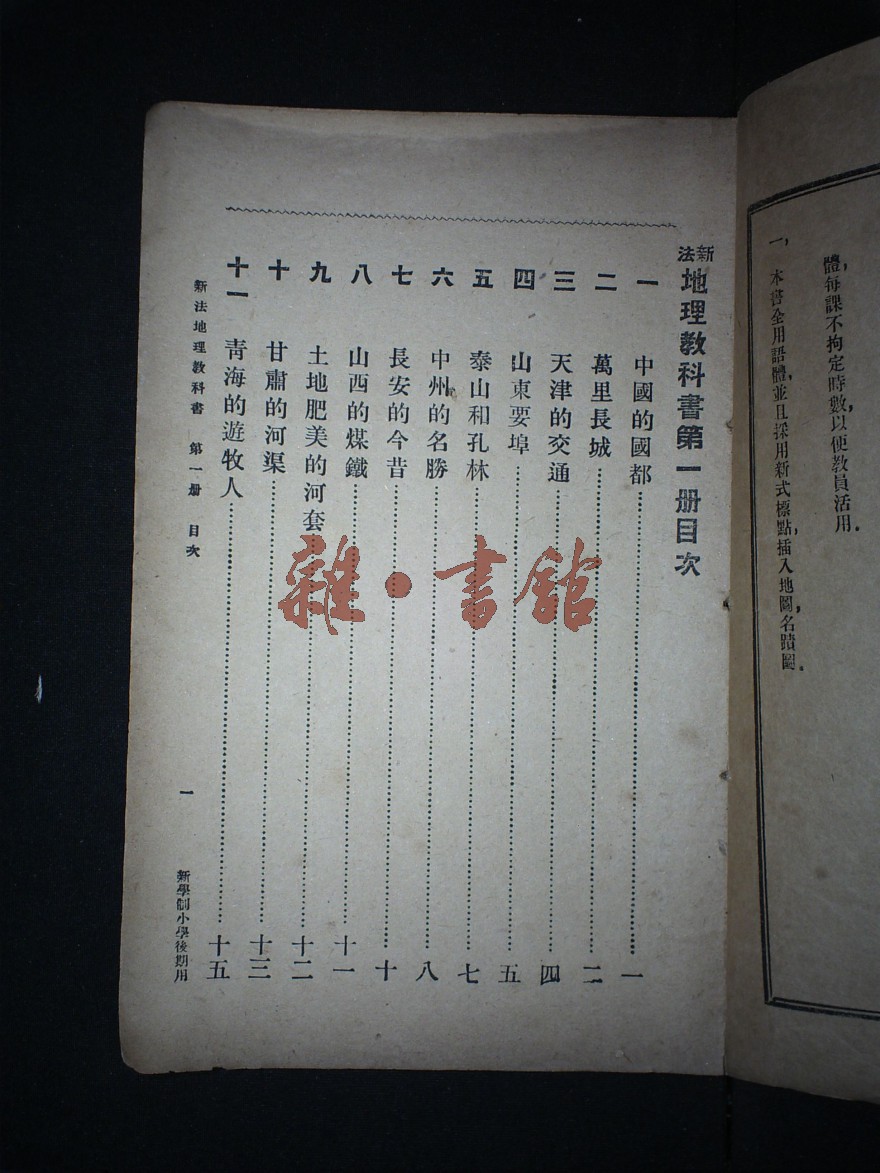 體,每課不拘定時數,以便教員活用.
一,本書全用語體,並且採用新式標點,插入地圖,名蹟圖.
新法地理教科書第一册目次
一 中國的國都……一
二 萬里長城……二
三 天津的交通……四
四 山東要埠……五
五 泰山和孔林……七
六 中州的名勝……八
七 長安的今昔……十
八 山西的煤鐵……十一
九 土地肥美的河套……十二
十 甘肅的河渠……十三
十一 靑海的遊牧人……十五
新法地理教科書 第一册 目次 一 新學制小學後期用
雜·書館